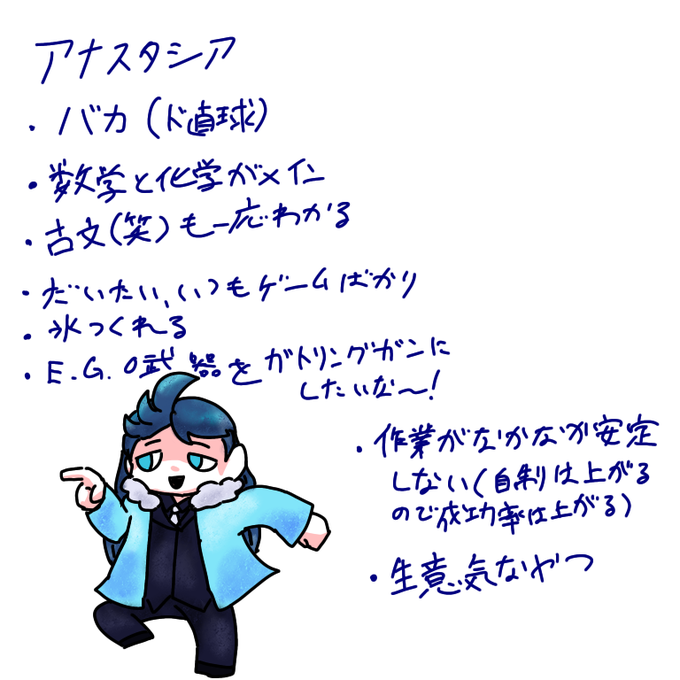 アナスタシア
・バカ(ド直球)
・数学と化学がメイン
・古文(笑)も一応わかる
・だいたい、いつもゲームばかり
・氷つくれる
・E.G.O武器をガトリングガンに
したいな〜!
・作業がなかなか安定
しない(自制は上がる
ので成功率は上がる)
・生意気なやつ